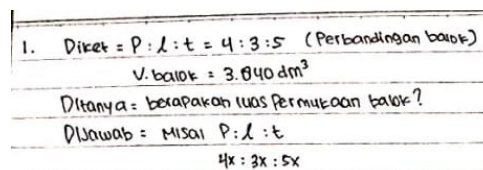 1. Diket = P : l : t = 4 : 3 : 5 (Perbandingan balok)
V. balok = 3.840 dm³
Ditanya = berapakah luas Permukaan balok?
DiJawab = Misal P : l : t
4x : 3x : 5x